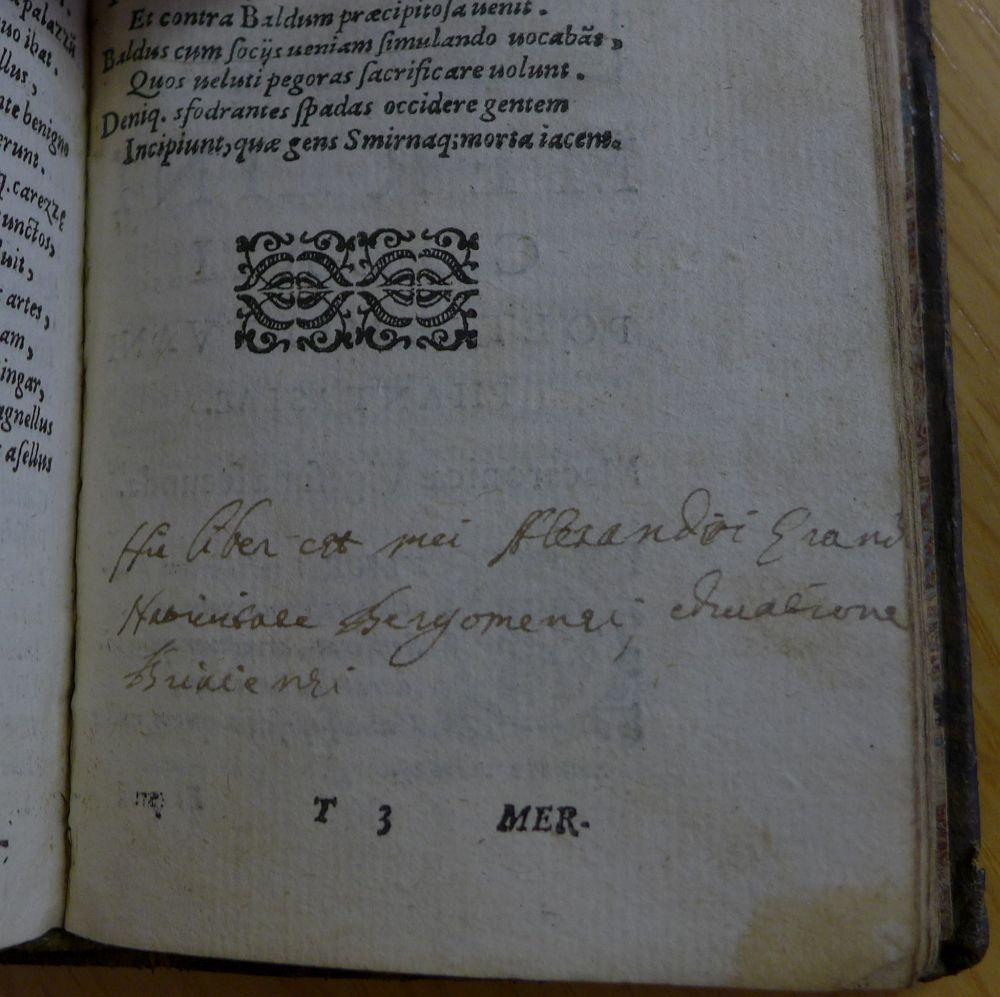 palazzũ
uo ibat.
llus,
nte benigno
erunt.
q. carezzę
unctos,
luit,
artes,
am,
ingar,
agnellus
asellus
Et contra Baldum præcipitosa uenit.
Baldus cum socijs ueniam simulando uocabãt,
Quos ueluti pegoras sacrificare uolunt.
Deniq. sfodrantes spadas occidere gentem
Incipiunt, quæ gens Smirnaq; morta iacent.
liber est mei Alexandri Grand
Bergomensi, educatione
Brixiensi
T 3 MER-